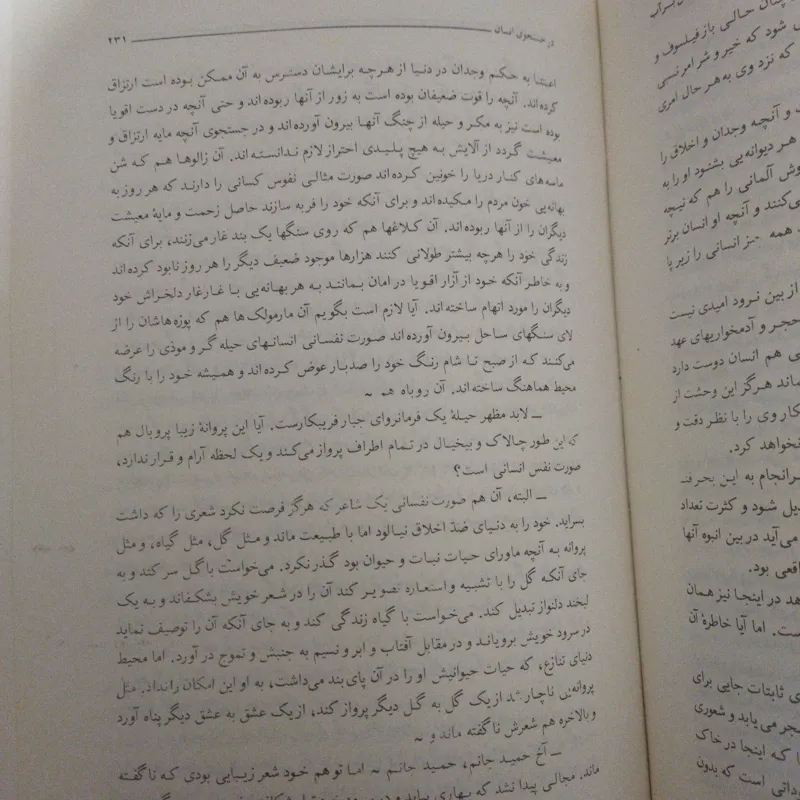 در جستجوی انسان ۲۳۱
اعتنا به حکم وجدان در دنیا از هرچه برایشان دسترس به آن ممکن بوده است ارتزاق
کرده‌اند. آنچه را قوت ضعیفان بوده است به زور از آنها ربوده‌اند و حتی آنچه در دست اقویا
بوده است نیز به مکر و حیله از چنگ آنها بیرون آورده‌اند و در جستجوی آنچه مایه ارتزاق و
معیشت گردد از آلایش به هیچ پلیدی احتراز لازم ندانسته‌اند. آن زالوها هم که شن
ماسه‌های کنار دریا را خونین کرده‌اند صورت مثالی نفوس کسانی را دارند که هر روز به
بهانه‌یی خون مردم را مکیده‌اند و برای آنکه خود را فربه سازند حاصل زحمت و مایهٔ معیشت
دیگران را از آنها ربوده‌اند. آن کلاغها هم که روی سنگها یک بند غار می‌زنند، برای آنکه
زندگی خود را هرچه بیشتر طولانی کنند هزارها موجود ضعیف دیگر را هر روز نابود کرده‌اند
و به خاطر آنکه خود از آزار اقویا در امان بمانند به هر بهانه‌یی با غارغار دلخراش خود
دیگران را مورد اتهام ساخته‌اند. آیا لازم است بگویم آن مارمولک‌ها هم که پوزه‌هاشان را از
لای سنگهای ساحل بیرون آورده‌اند صورت نفسانی انسانهای حیله گر و موذی را عرضه
می‌کنند که از صبح تا شام رنگ خود را صدبار عوض کرده‌اند و همیشه خود را با رنگ
محیط هماهنگ ساخته‌اند. آن روباه هم ~
ــ لابد مظهر حیلهٔ یک فرمانروای جبار فریبکارست. آیا این پروانهٔ زیبا پروبال هم
که این طور چالاک و بیخیال در تمام اطراف پرواز می‌کند و یک لحظه آرام و قرار ندارد،
صورت نفس انسانی است؟
ــ البته، آن هم صورت نفسانی یک شاعر که هرگز فرصت نکرد شعری را که داشت
بسراید. خود را به دنیای ضد اخلاق نیالود اما با طبیعت ماند و مثل گل، مثل گیاه، و مثل
پروانه به آنچه ماورای حیات نبات و حیوان بود گذر نکرد. می‌خواست با گل سر کند و به
جای آنکه گل را با تشبیه و استعاره تصویر کند آن را در شعر خویش بشکفاند و به یک
لبخند دلنواز تبدیل کند. می‌خواست با گیاه زندگی کند و به جای آنکه آن را توصیف نماید
در سرود خویش برویاند و در مقابل آفتاب و ابر و نسیم به جنبش و تموج در آورد. اما محیط
دنیای تنازع، که حیات حیوانیش او را در آن پای بند می‌داشت، به او این امکان را نداد. مثل
پروانه‌یی ناچار شد از یک گل به گل دیگر پرواز کند، از یک عشق به عشق دیگر پناه آورد
و بالاخره هم شعرش ناگفته ماند و ~
ــ آخ حمید جانم، حمید جانم ~ اما تو هم خود شعر زیبایی بودی که ناگفته
ماند. مجالی پیدا نشد که بهاری بیاید و
چنان حالی باز فیلسوف و
شود که خیر و شر امر نسبی
که نزد وی به هر حال امری
و آنچه وجدان و اخلاق را
هر دیوانه‌یی بشنود او را به
آلمانی را هم که نیچه
می‌کنند و آنچه او انسان برتر
همه چیز انسانی را زیر پا
از بین نرود امیدی نیست
حجر و آدمخواریهای عهد
هم انسان دوست دارد
هرگز این وحشت از
کار وی را با نظر دقت و
نخواهد کرد.
سرانجام به این
تبدیل شود و کثرت تعداد
می‌آید در بین انبوه آنها
واقعی بود.
در اینجا نیز همان
اما آیا خاطرهٔ آن
ثابتات جایی برای
می‌یابد و شعوری
که اینجا در خاک
است که بدون